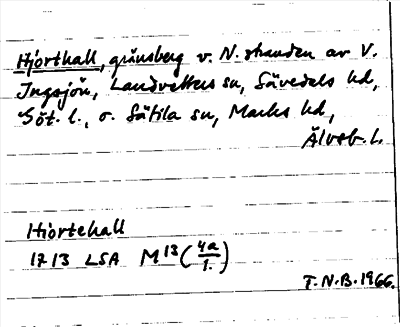 Hjorthall, gränsberg v. N. stranden av V.
Ingsjön, Landvetters sn, Sävedals hd,
Göt. l., o. Sätila sn, Marks hd,
Älvsb. l.
Hiortehall
1713 LSA M¹³ (4a/1.)
T.N.B. 1966.